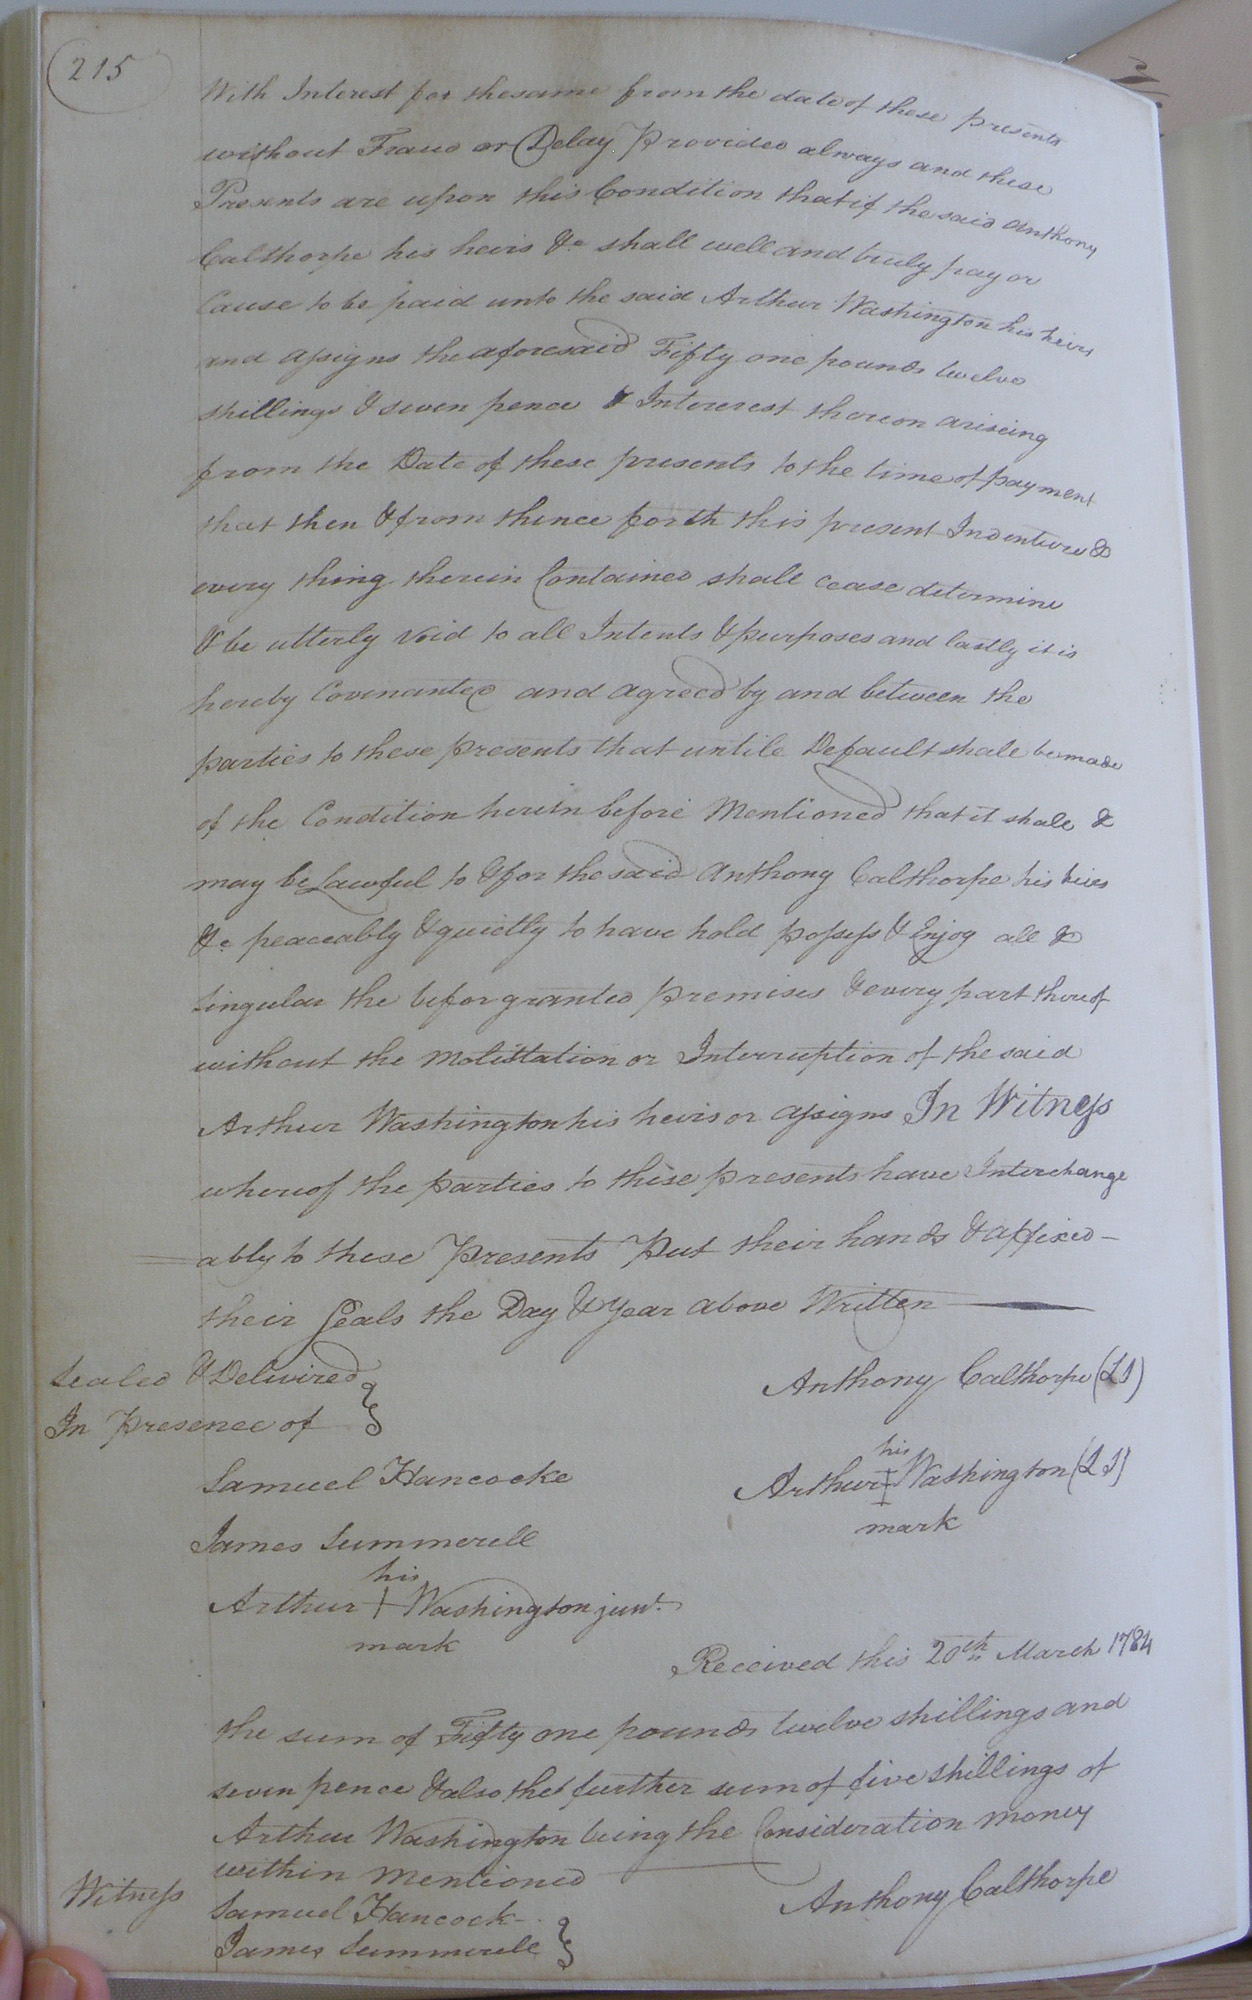 215
With Interest for thesame from the date of these presents
without Fraud or Delay Provided always and these
Presents are upon this Condition that if the said Anthony
Calthorpe his heirs &c shall well and truly pay or
Cause to be paid unto the said Arthur Washington his heirs
and assigns the aforesaid Fifty one pounds twelve
shillings & seven pence & Intererest thereon ariseing
from the Date of these presents to the time of payment
that then & from thence forth this present Indenture &
every thing therein Contained shall cease determine
& be utterly void to all Intents & purposes and lastly it is
hereby Covenanted and agreed by and between the
parties to these presents that untile Default shale be made
of the Condition herein before Mentioned that it shale &
may be Lawful to & for the said Anthony Calthorpe his heirs
&c peaceably & quietly to have hold possess & Enjoy all &
singular the befor granted premises & every part thereof
without the Molistation or Interruption of the said
Arthur Washington his heirs or assigns In Witness
whereof the parties to these presents have Interchange
ably to these Presents Put their hands & affixed
their Seals the Day & Year above Written
Sealed & Delivired
In Presence of
Anthony Calthorpe (LS)
Samuel Hancocke
his
Arthur + Washington (LS)
mark
James Summerell
his
Arthur + Washington junr.
mark
Received this 20th March 1784
the sum of Fifty one pounds twelve shillings and
seven pence & also the further sum of five shillings of
Arthur Washington being the Consideration money
within mentioned
Anthony Calthorpe
Witness
Samuel Hancock
James Summerell